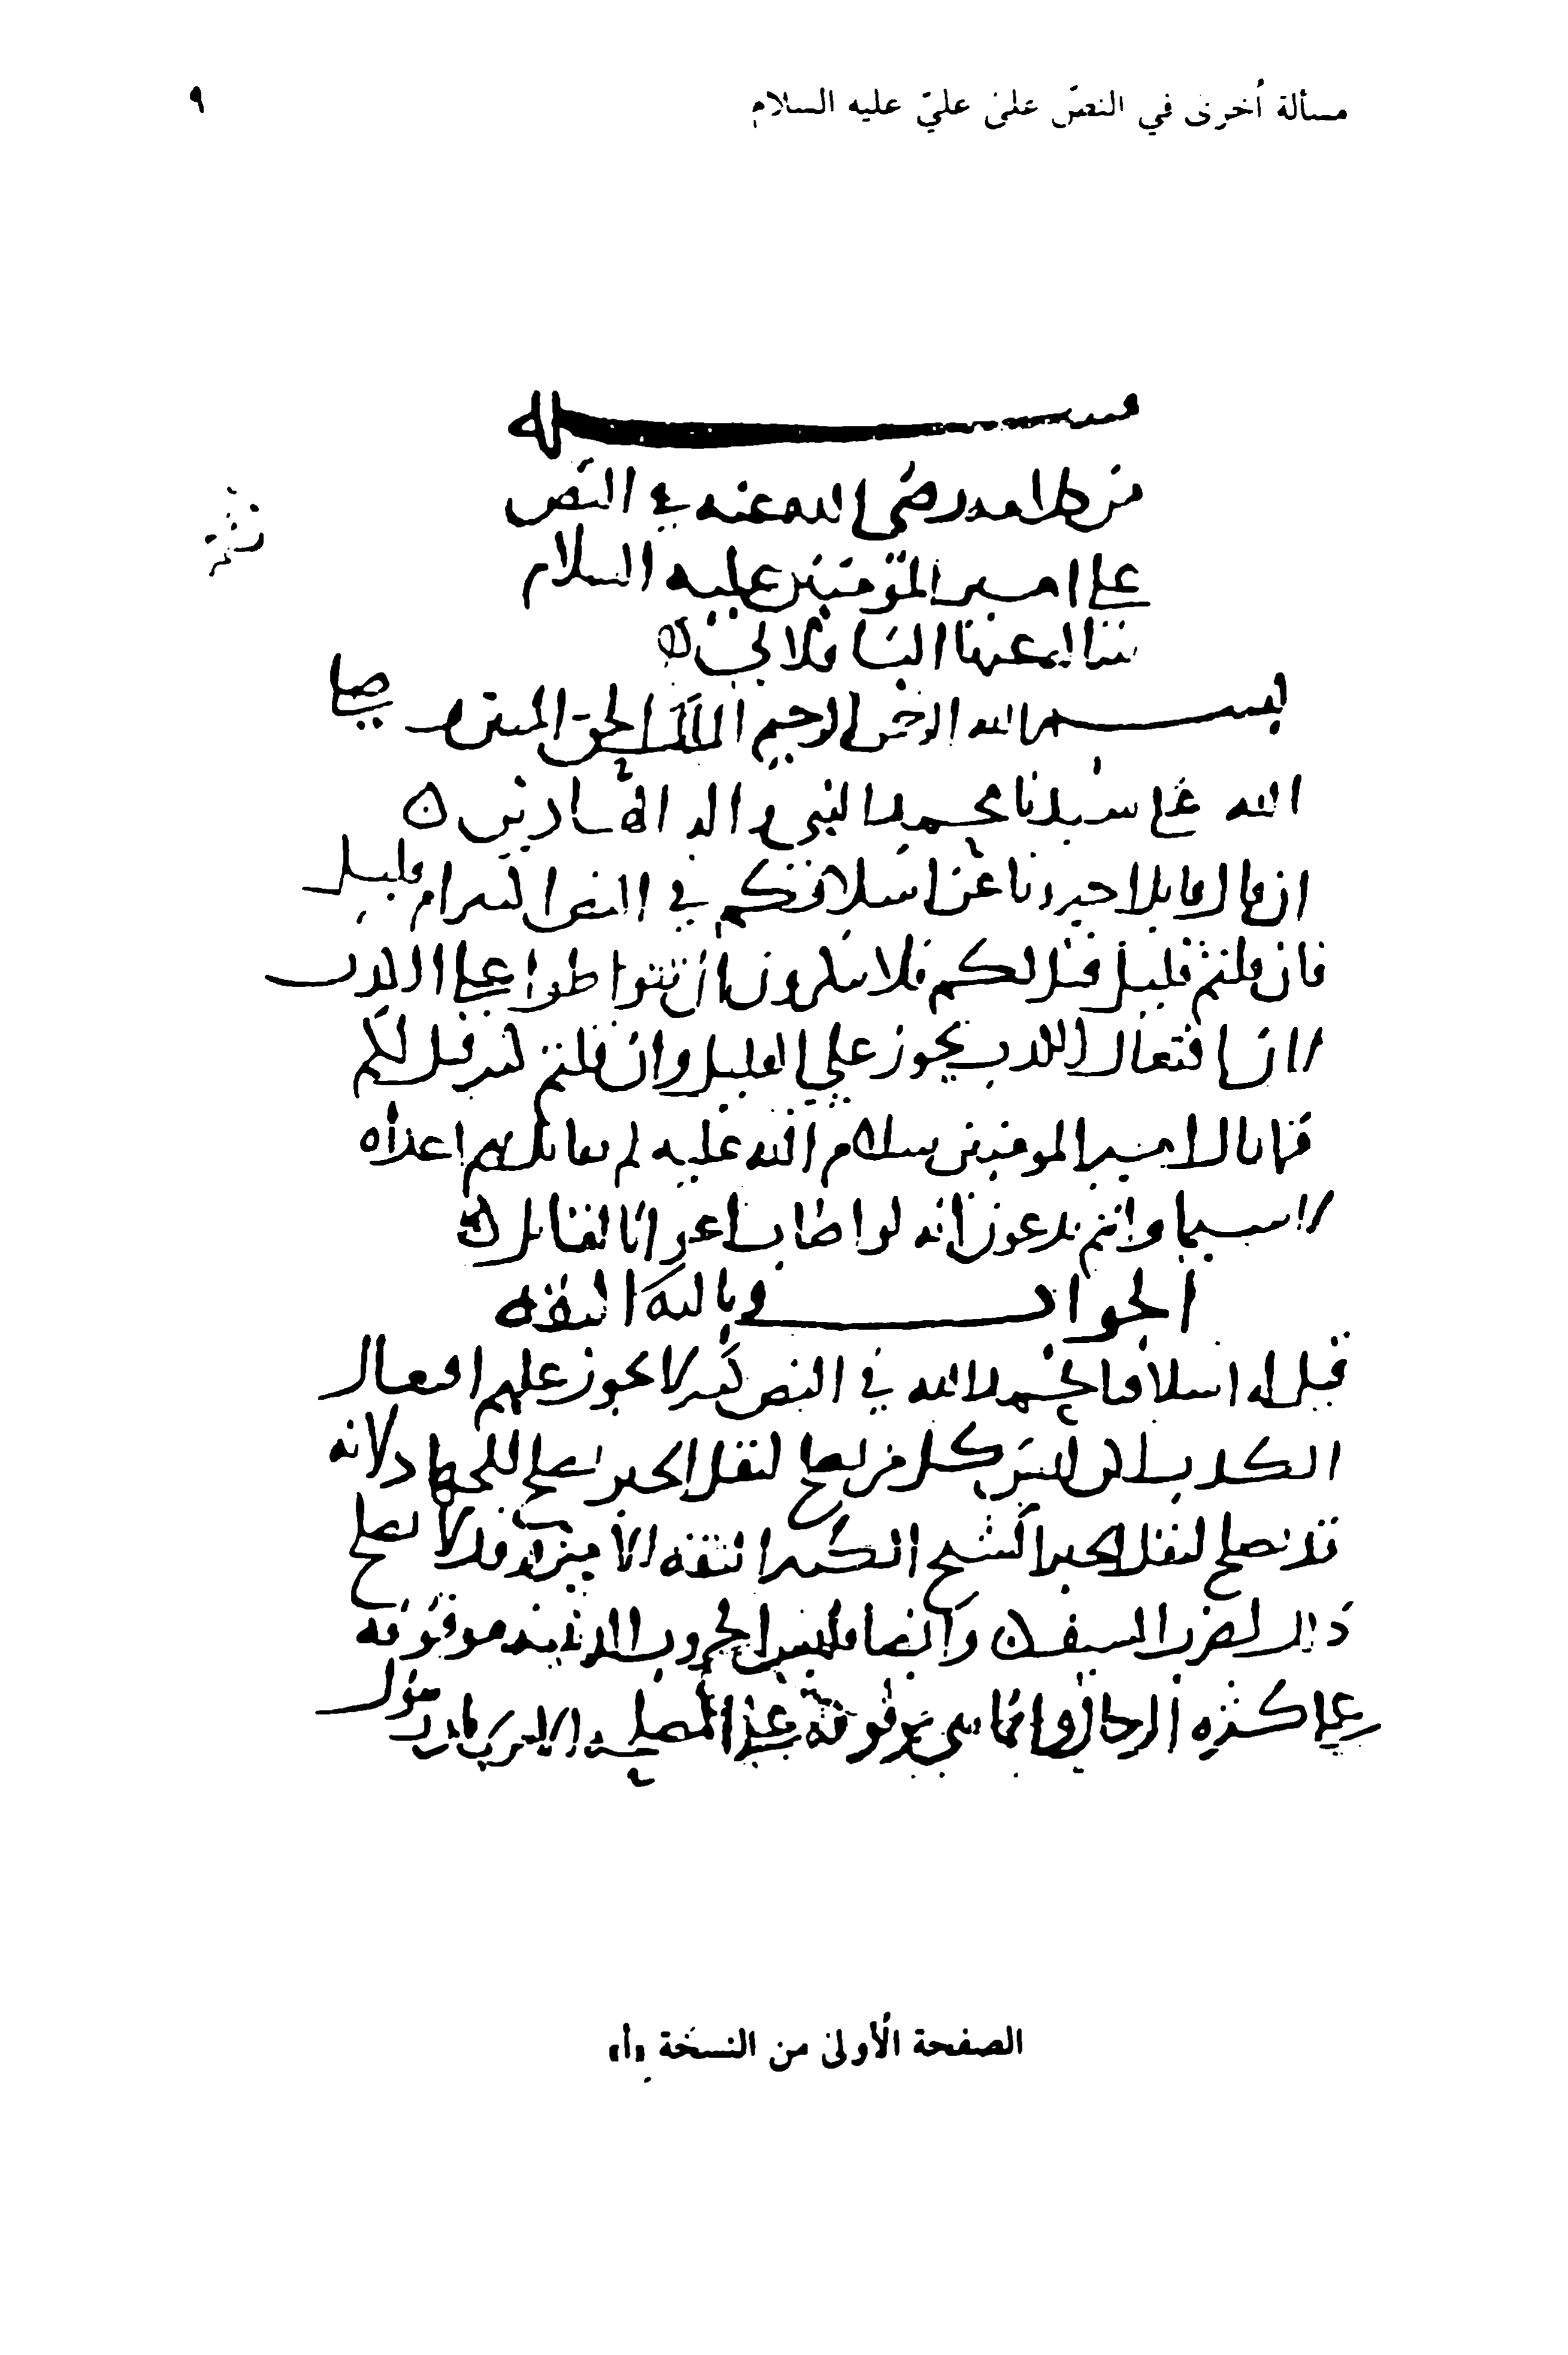 مسألة أخرى في النصّ على عليّ عليه السلام
٩
مسـله
من كلامه رضي الله عنه في النص
على امير المؤمنين عليه السلام
الباقلاني
بسم الله الرحمن الرحيم الملك الحق المبين وصلى
الله على سيدنا محمد النبي واله
ان قال قايل اخبرونا عن اسلافكم في النص اكثير ام قليل
فان قلتم قليل قيل لكم فلا تنكرون ان يتواطوا على الكذب
لان افتعال الكذب يجوز على القليل وان قلتم كثير قيل لكم
فما بال امير المومنين سلام الله عليه لم يقاتل بهم اعداه
لا سيما وانتم تدعون انه لو اصاب اعوانا لقاتل
الجواب وبالله الثقه
قيل له اسلافنا بحمد الله في النص كثير لا يجوز عليهم افتعال
الكذب ليس كل من يصلح لنقل الخبر يصلح للجهاد لانه
قد يصلح لنقل الخبر الشيخ الكبير الثقه الامين وقد لا يصلح
ذلك لضرب السيف وايضا فليس الحروب مبنيه موقوفه
على كثره الرجال وانما هي موقوفة على المصلحه الا ترى ان رسول
الصفحة الأولى من النسخة «أ»